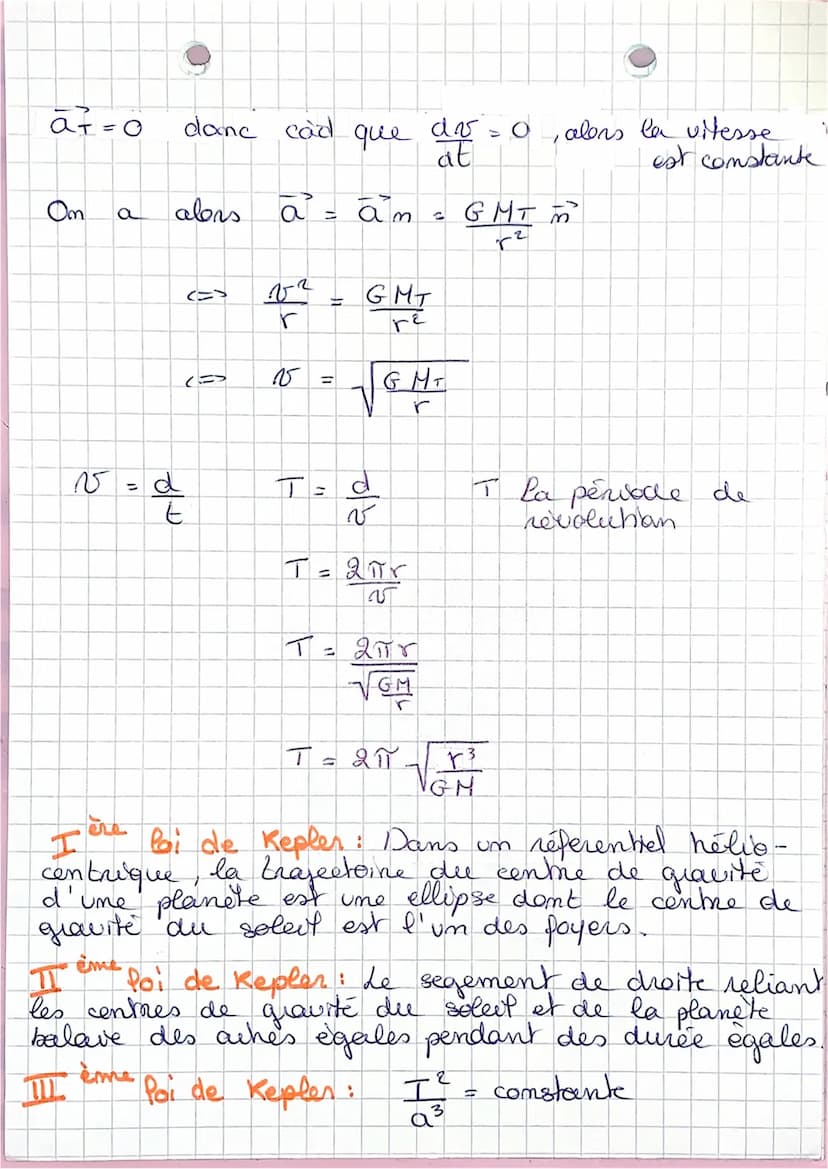 a⃗_T = 0 donc càd que dv/dt = 0, alors la vitesse
est constante
On a alors a⃗ = a⃗n = GM_T/r² n⃗
<=> v²/r = GM_T/r²
<=> v = √(GM_T/r)
v = d/t T = d/v T la période de
révolution
T = 2πr/v
T = 2πr/√(GM/r)
T = 2π √(r³/GM)
Ière loi de Kepler : Dans un réferentiel hélio-
centrique, la trajectoire du centre de gravité
d'une planète est une ellipse dont le centre de
gravité du soleil est l'un des foyers.
IIème loi de Kepler : Le segement de droite reliant
les centres de gravité du soleil et de la planète
balaie des aires égales pendant des durée égales.
IIIème loi de Kepler : T²/a³ = constante